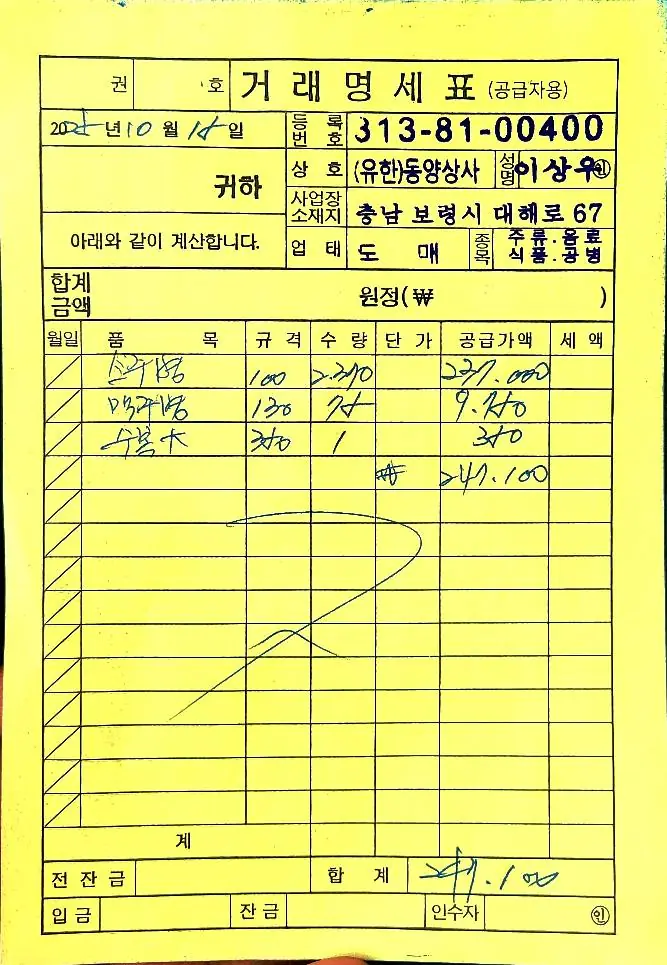 권 호 거 래 명 세 표 (공급자용)
2025 년 10 월 15 일
등록번호 313-81-00400
귀하
상 호 (유한)동양상사 성명 이상우 인
사업장 소재지 충남 보령시 대해로 67
아래와 같이 계산합니다.
업 태 도 매 종목 주류.음료 식품.공병
합계금액 원정(₩ )
월일 품 목 규 격 수 량 단 가 공급가액 세 액
소주병 100 2.370 237.000
맥주병 130 75 9.750
350 1 350
₩ 247.100
계
전 잔 금 합 계 247.100
입 금 잔 금 인수자 인